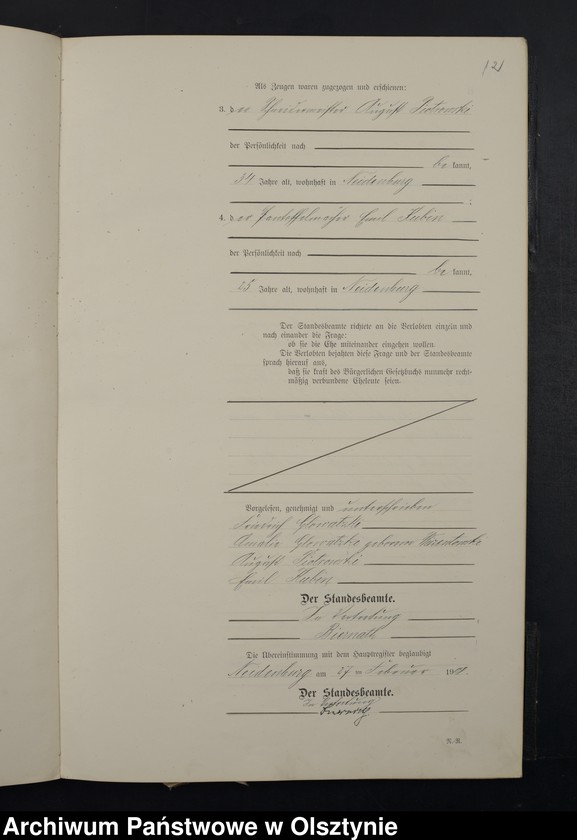 121
Als Zeugen waren zugezogen und erschienen:
3. der Schneidermeister August Piotrowski
der Persönlichkeit nach
be kannt,
34 Jahre alt, wohnhaft in Neidenburg
4. der Pantoffelmacher Emil Kubin
der Persönlichkeit nach
be kannt,
25 Jahre alt, wohnhaft in Neidenburg
Der Standesbeamte richtete an die Verlobten einzeln und
nach einander die Frage:
ob sie die Ehe miteinander eingehen wollen.
Die Verlobten bejahten diese Frage und der Standesbeamte
sprach hierauf aus,
daß sie kraft des Bürgerlichen Gesetzbuchs nunmehr recht-
mäßig verbundene Eheleute seien.
Vorgelesen, genehmigt und unterschrieben
Friedrich Glowatzki
Amalie Glowatzki geborene
August Piotrowski
Emil Kubin
Der Standesbeamte.
In Vertretung
Die Übereinstimmung mit dem Hauptregister beglaubigt
Neidenburg am 27 ten Februar 190
Der Standesbeamte.
In Vertretung
N.-R.
Archiwum Państwowe w Olsztynie